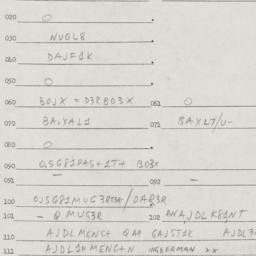 020 O
030 NUGL8
060 DAJF1K
050 O
060 BOJX = D3RBO3X 061 O
070 BA,XAL1 071 BAXL7/U-
080 O
090 O,SG81PAS+1T+ BO3X
091 - 092 -
100 O,SG81MUG3R /DAR3R
101 - Q MUG3R 102 ANAJDLK81NT
110 AJDLMENC+ QAR GAJST1K AJDL3
111 AJDL1NMENC+N INGHERMAN XX